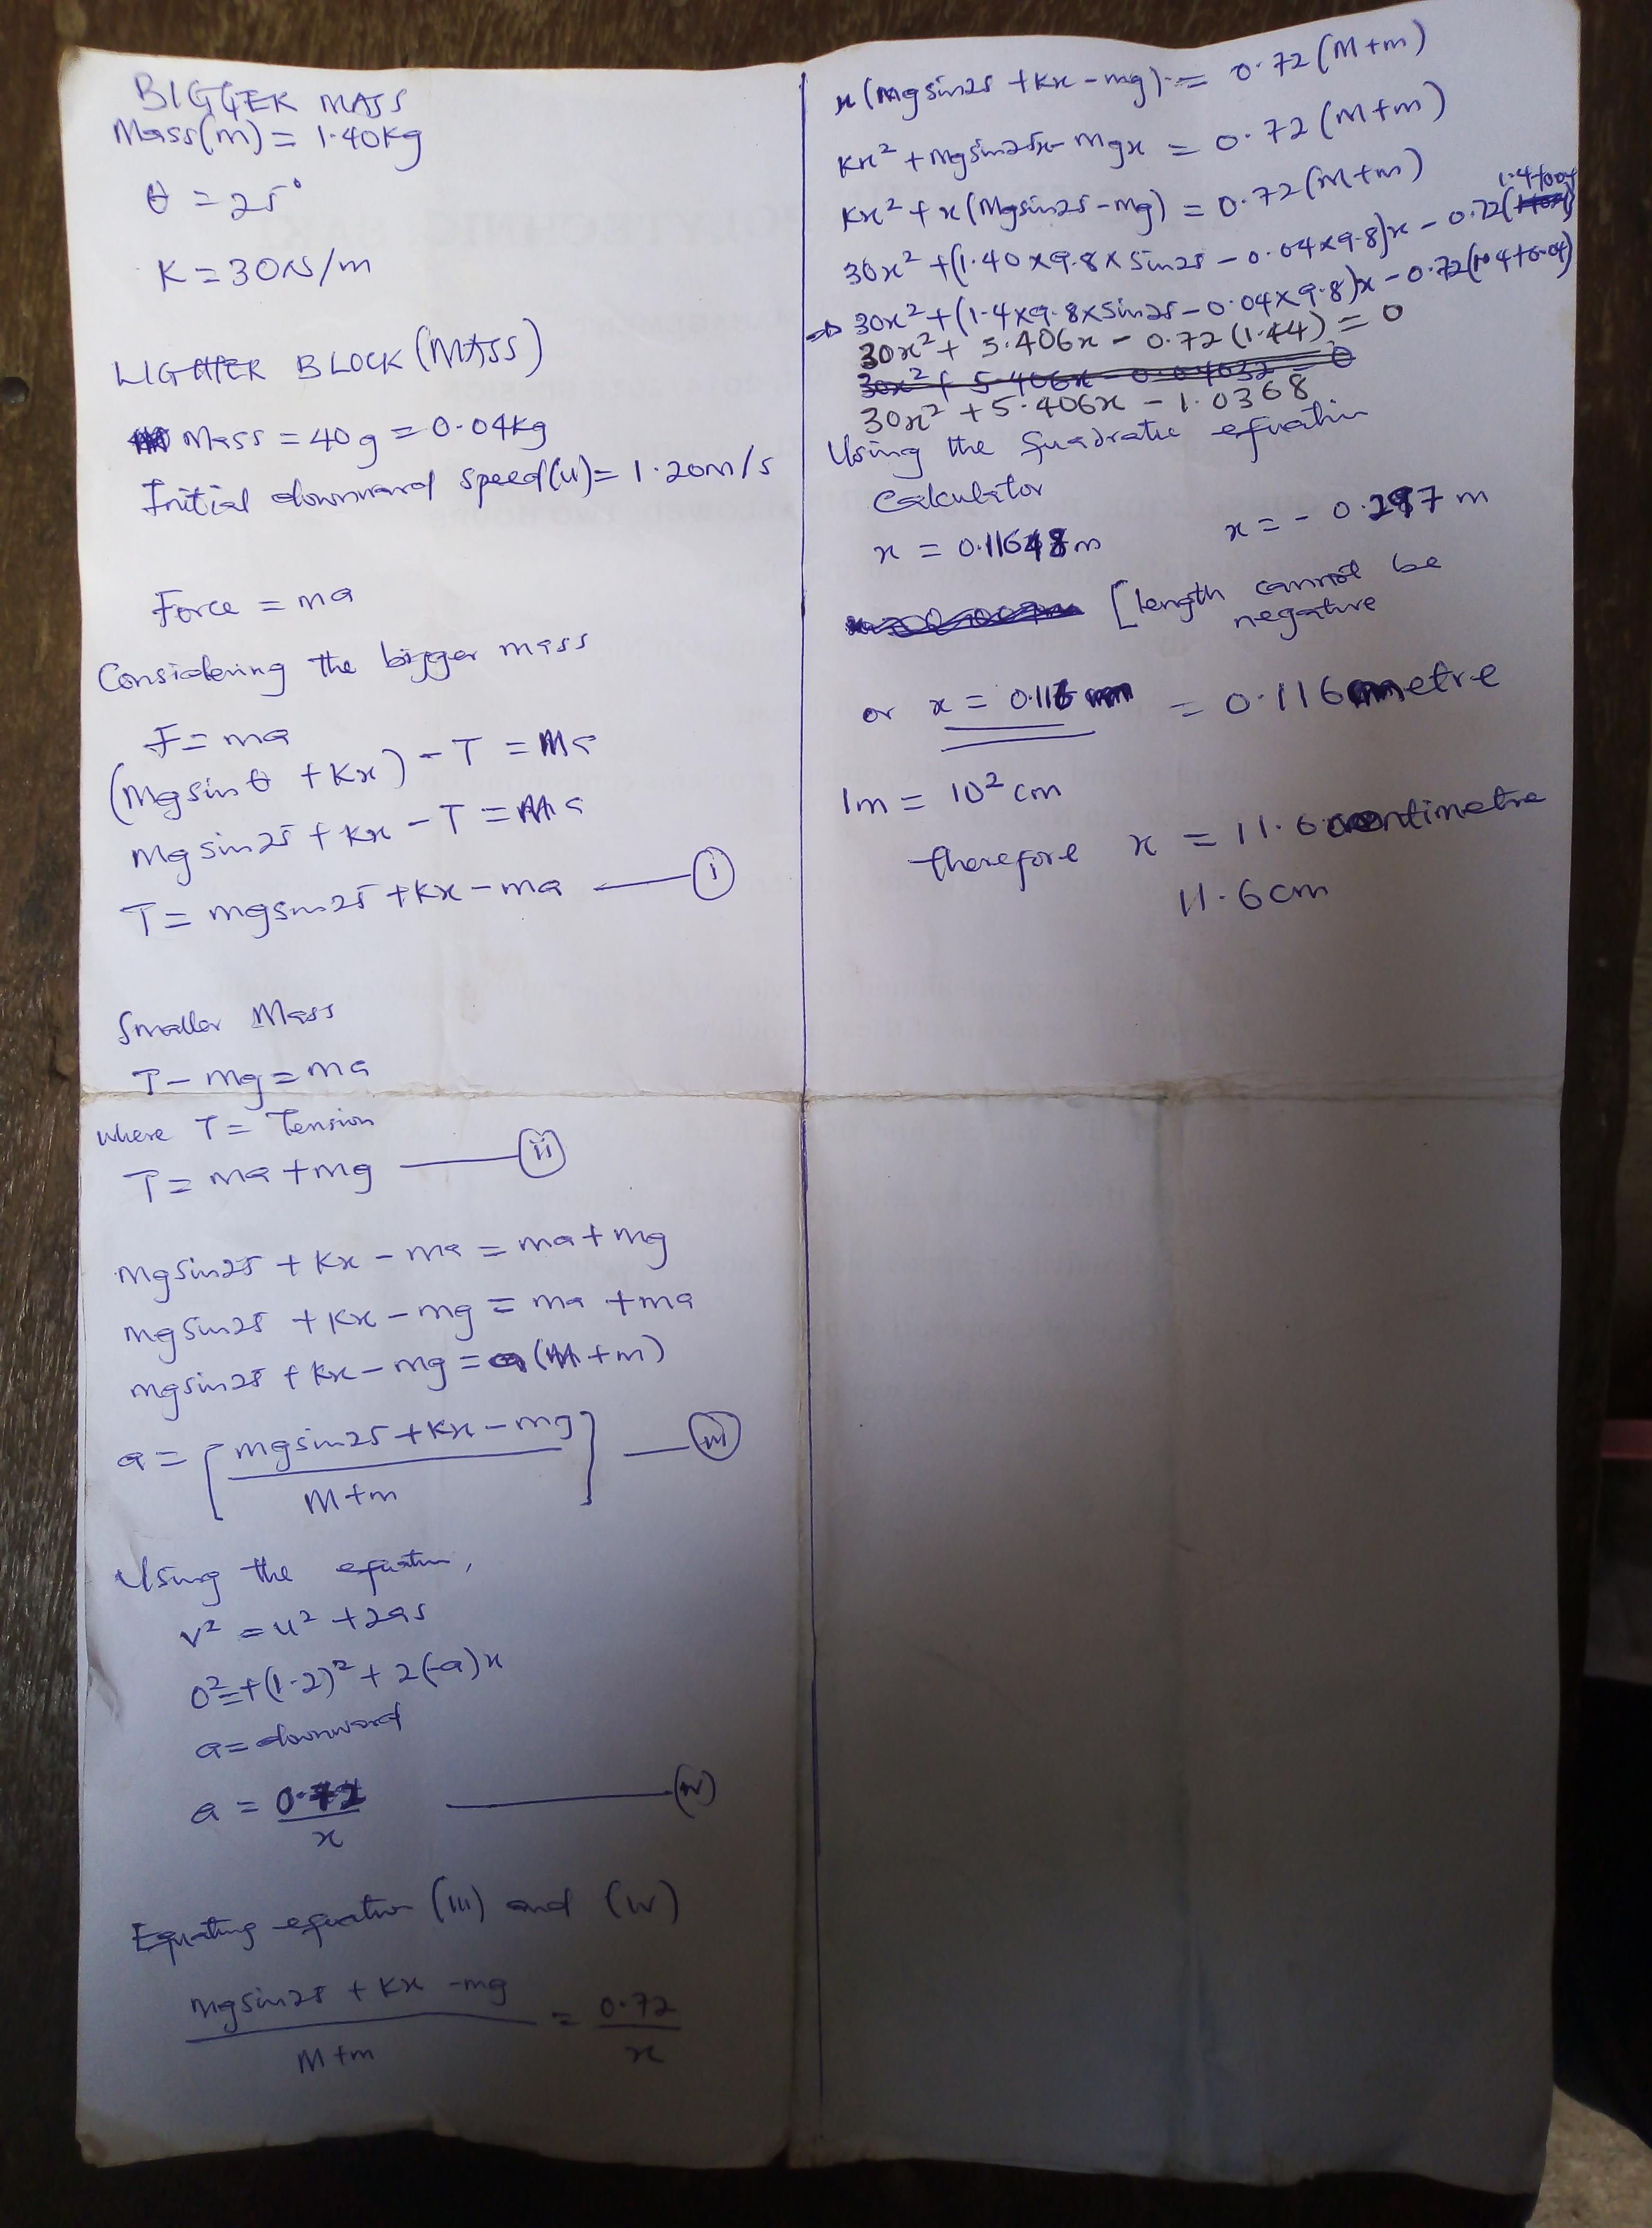 BIGGER MASS
Mass(m) = 1.40kg
θ = 25°
K = 30N/m
LIGHTER BLOCK (MASS)
Mass = 40g = 0.04kg
Initial downward speed(u) = 1.20m/s
Force = ma
Considering the bigger mass
F = ma
(Mgsinθ + Kx) - T = Ma
Mgsin25 + Kx - T = Ma
T = mgsin25 + Kx - ma — (i)
Smaller Mass
T - mg = ma
where T = Tension
T = ma + mg — (ii)
Mgsin25 + Kx - ma = ma + mg
mgsin25 + Kx - mg = ma + ma
mgsin25 + Kx - mg = a(M + m)
a = [mgsin25 + Kx - mg / M + m] — (iii)
Using the equation,
v² = u² + 2as
0² = +(1.2)² + 2(-a)x
a = downward
a = 0.72 / x — (iv)
Equating equation (iii) and (iv)
mgsin25 + Kx - mg / M + m = 0.72 / x
x(mgsin25 + Kx - mg) = 0.72(M + m)
Kx² + Mgsin25x - mgx = 0.72(M + m)
Kx² + x(Mgsin25 - mg) = 0.72(M + m)
30x² + (1.40 x 9.8 x Sin25 - 0.04 x 9.8)x - 0.72(1.4+0.04)
⇒ 30x² + (1.4 x 9.8 x Sin25 - 0.04 x 9.8)x - 0.72(1.4+0.04)
30x² + 5.406x - 0.72(1.44) = 0
30x² + 5.406x - 0.04032 = 0
30x² + 5.406x - 1.0368
Using the quadratic equation
Calculator
x = 0.11648m x = - 0.297m
[length cannot be
negative
or x = 0.116 m = 0.116 metre
1m = 10² cm
Therefore x = 11.6 centimetre
11.6cm